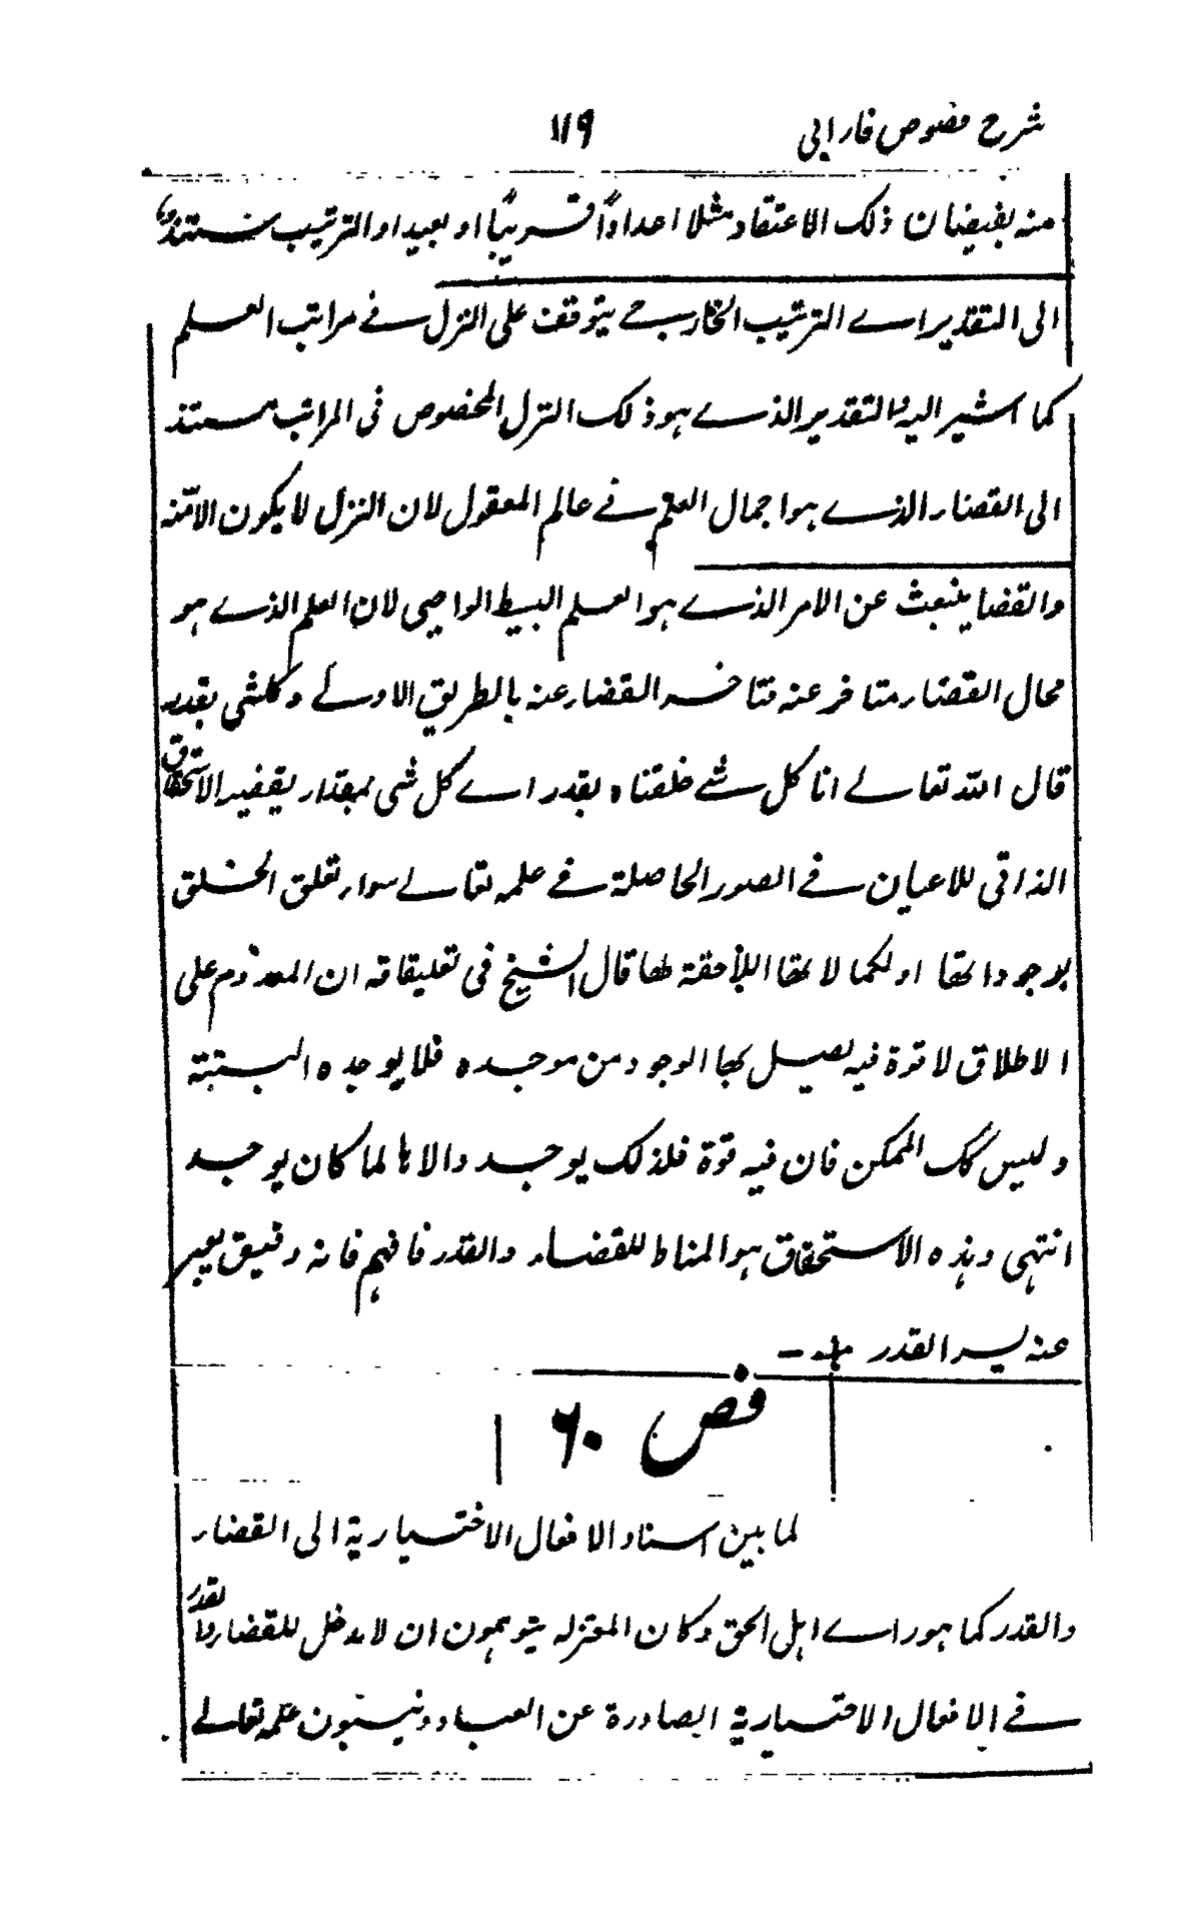 شرح فصوص فارابی ١١٩
منه بفیضان ذلک الاعتقاد مثلا اعدادًا قریبًا او بعیدا والترتیب یستند
الی التقدیر اے الترتیب الخارجے یتوقف علی التنزل فے مراتب العلم
کما اشیر الیه والتقدیر الذے هو ذلک التنزل المخصوص فی المراتب مستند
الی القضاء الذے هو اجمال العلم فے عالم المعقول لان التنزل لا یکون الا منه
والقضا ینبعث عن الامر الذے هو العلم البسیط الواجبی لان العلم الذے هو
محال القضاء متاخر عنه فتاخر القضاء عنه بالطریق الاولے وکلشی بقدر
قال الله تعالے انا کل شئے خلقناه بقدر اے کل شی بمقدار یقتضیه الاستحقاق
الذاتی للاعیان فے الصور الحاصلة فے علمه تعالے سواء تعلق الخلق
بوجوداتها او لکمالاتها اللاحقة لها قال الشیخ فی تعلیقاته ان المعدوم علی
الاطلاق لا قوة فیه یصیل بها الوجود من موجده فلا یوجده البتة
ولیس کک الممکن فان فیه قوة فلذلک یوجد والا ما لما کان یوجد
انتهی وهذه الاستحقاق هو المناط للقضاء والقدر فافهم فانه دقیق یعبر
عنه بسر القدر
فص ٦٠
لما بین اسناد الافعال الاختیاریة الی القضاء
والقدر کما هو راے اهل الحق وکان المعتزله یتوهمون ان لا مدخل للقضاء والقدر
فے الافعال الاختیاریة الصادرة عن العباد وینسبون علمه تعالے